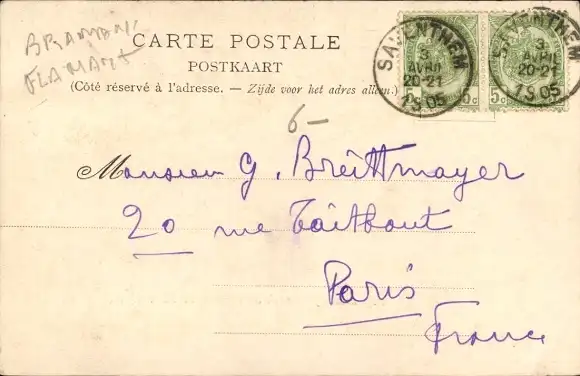 CARTE POSTALE
POSTKAART
(Côté réservé à l'adresse. — Zijde voor het adres alleen.)
SAVENTHEM
3
AVRIL
20-21
1905
5c 5c
SAVENTHEM
3
AVRIL
20-21
1905
5c 5c
FLAMANT
6-
Monsieur G. Breittmayer
20 rue Taitbout
Paris
France